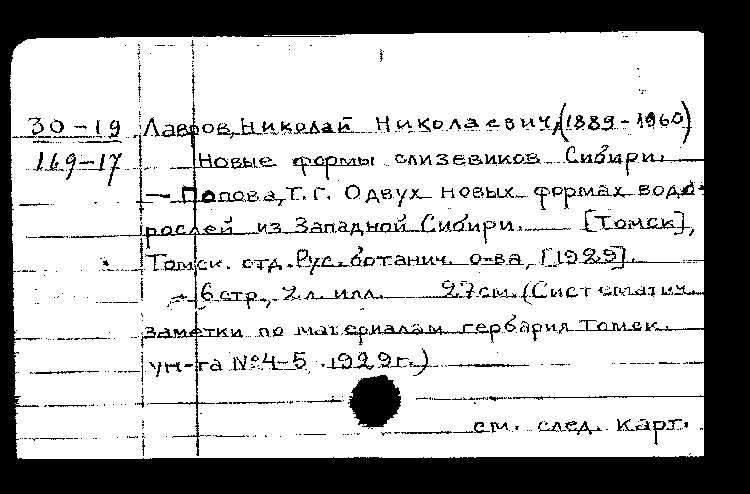 30-19 Лавров, Николай Николаевич, (1889-1960)
169-17 Новые формы слизевиков Сибири.
— Попова, Т. Г. О двух новых формах водо-
рослей из Западной Сибири. [Томск],
Томск. отд. Рус. ботанич. о-ва, [1929].
6 стр., 2 л. илл. 27 см. (Систематич.
заметки по материалам гербария Томск.
ун-та №4-5 . 1929 г.)
см. след. карт.